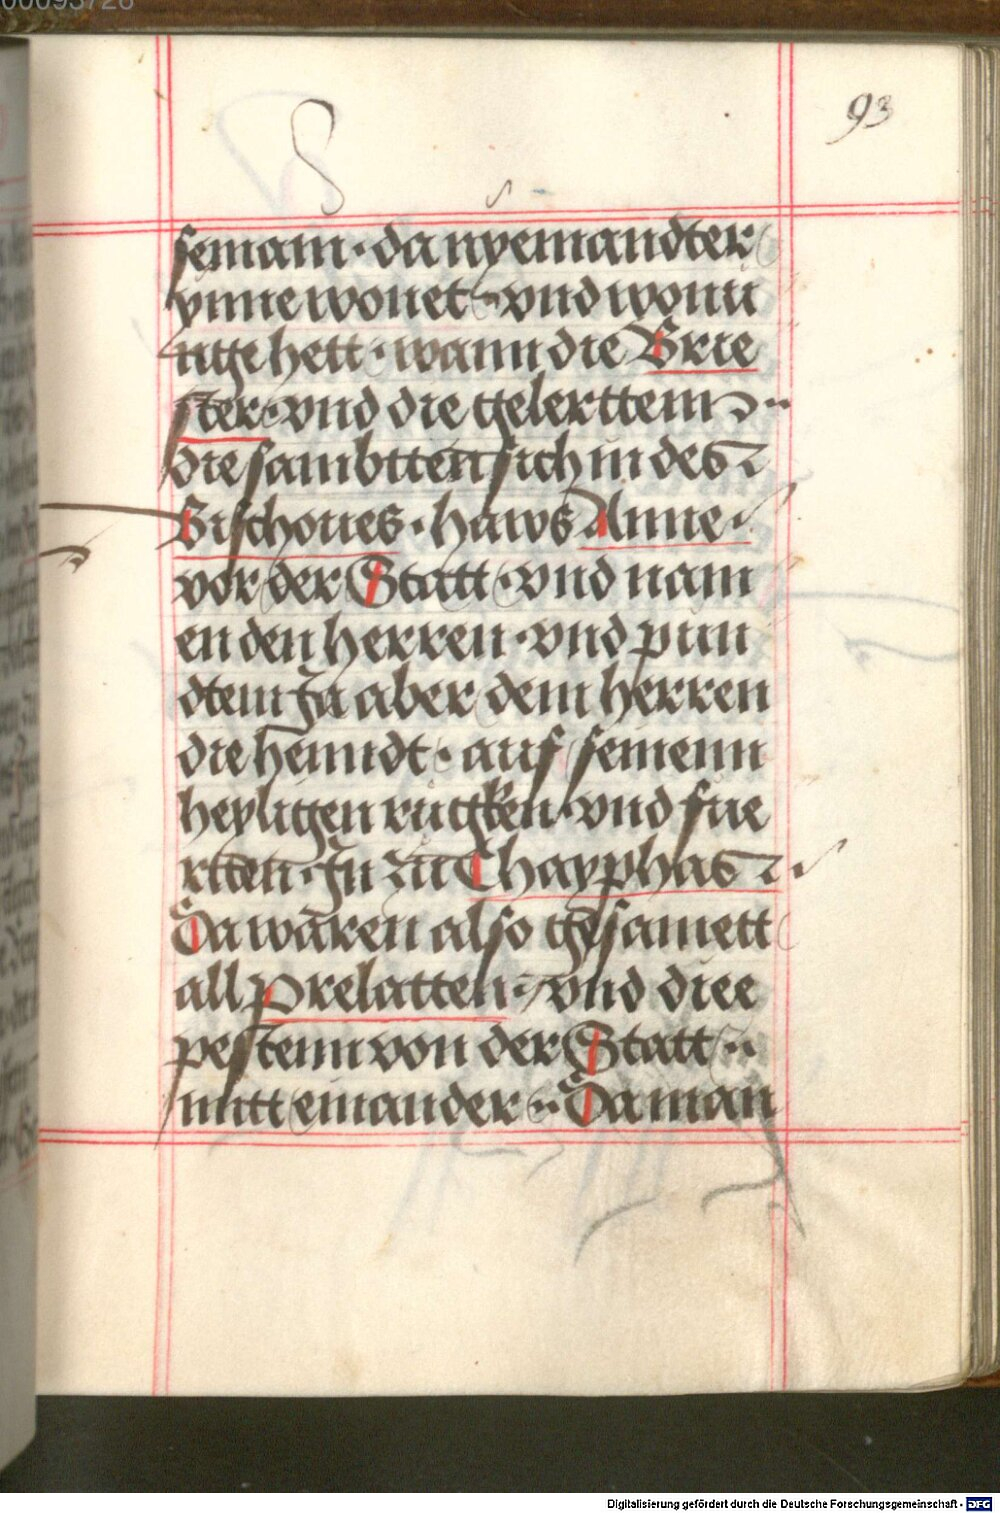 00093726
93
semam · da nyemandter
ynne wonet · vnd wonu
nge hett · wann die Brie
ster · vnd die gelerttenn ··
die sambtten sich in des
Bischoues · haws Anne ·
vor der Statt · vnd nam
en den herren · vnd pun
dtem Ja aber dem herren
die henndt · auf seinenn
heyligen rugken · vnd fue
rtten · Jn zu Chayphas
Da waren also gesamett
all prelatten · vnd diee
pestenn von der Statt ··
mitt einander ·· Da man
Digitalisierung gefördert durch die Deutsche Forschungsgemeinschaft - DFG